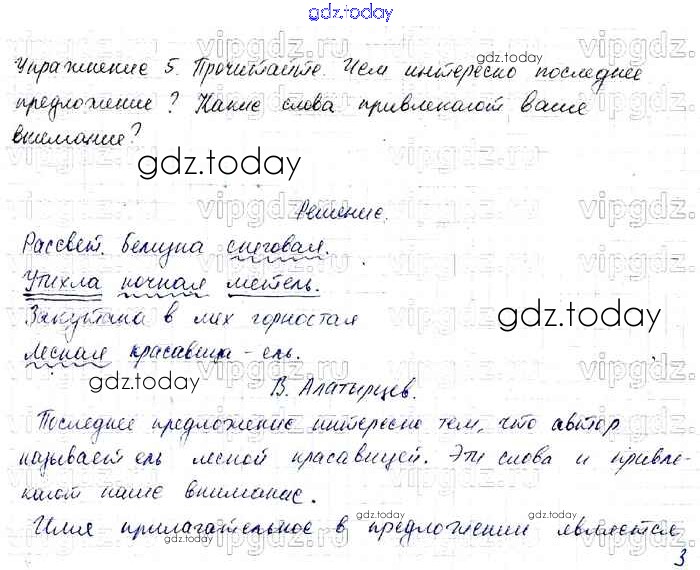 gdz.today
Упражнение 5. Прочитайте. Чем интересно последнее
gdz.today
предложение? Какие слова привлекают ваше
внимание?
gdz.today
Решение.
Рассвет. Белизна снеговая.
Утихла ночная метель.
Закутана в мех горностая
gdz.today
Лесная красавица - ель.
gdz.today
В. Алатырцев.
Последнее предложение интересно тем, что автор
называет ель лесной красавицей. Эти слова и привле-
кают наше внимание.
gdz.today
gdz.today
Имя прилагательное в предложении является
3